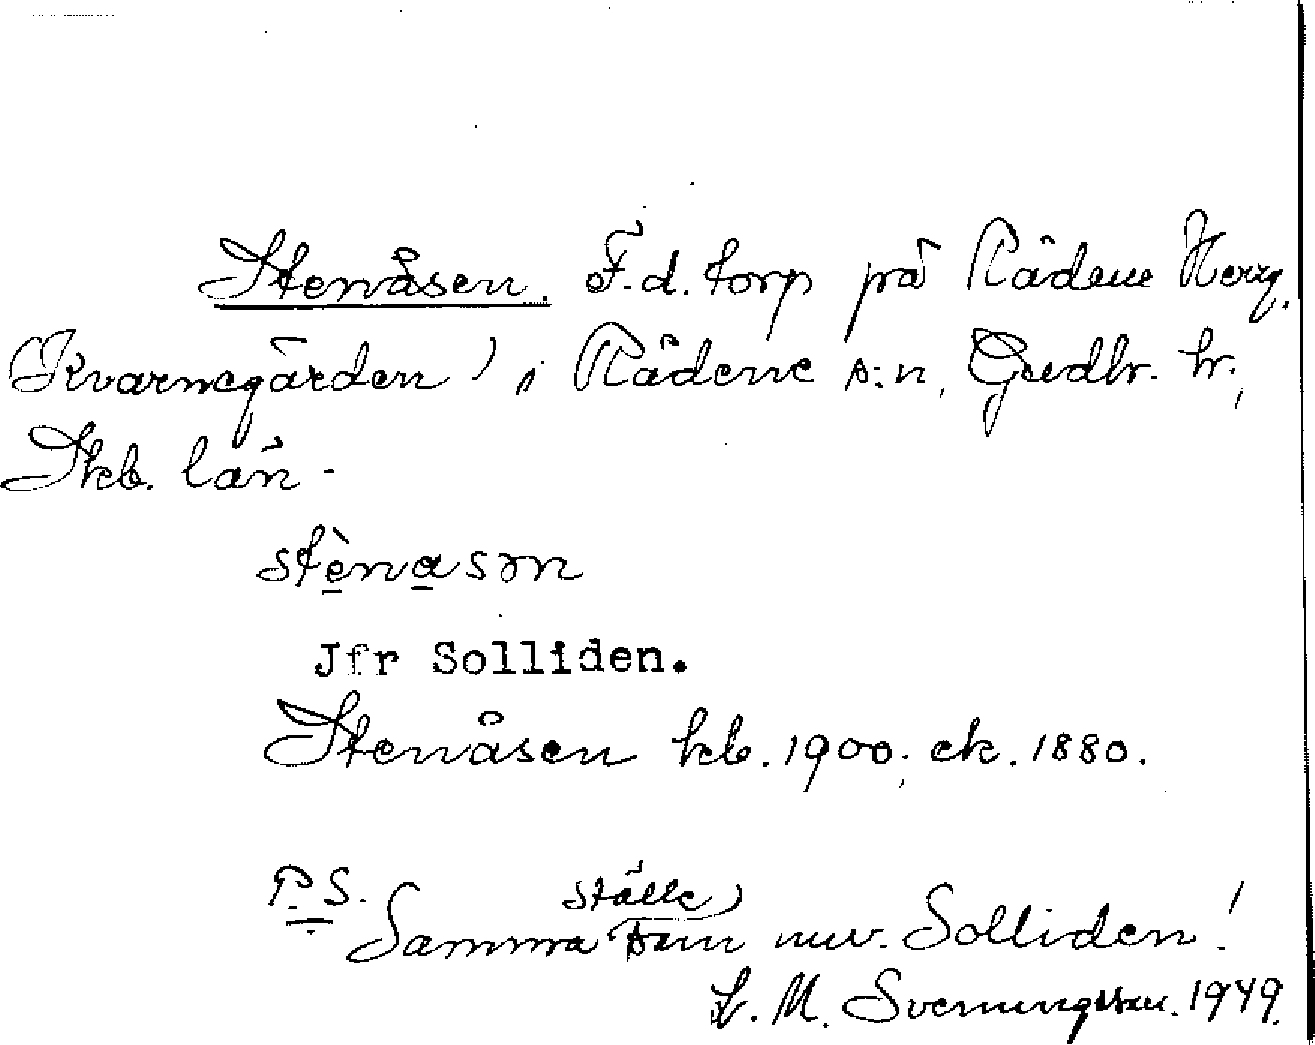 Stenåsen. F.d. torp på Rådene Herrg.
(Kvarnegården) i Rådene s:n, Gudhr. hr.,
Skb. län.
stènasɔn
Jfr Solliden.
Stenåsen kb. 1900; ek. 1880.
P.S. Samma ställe som nuv. Solliden!
L. M. Svenungsson. 1949.